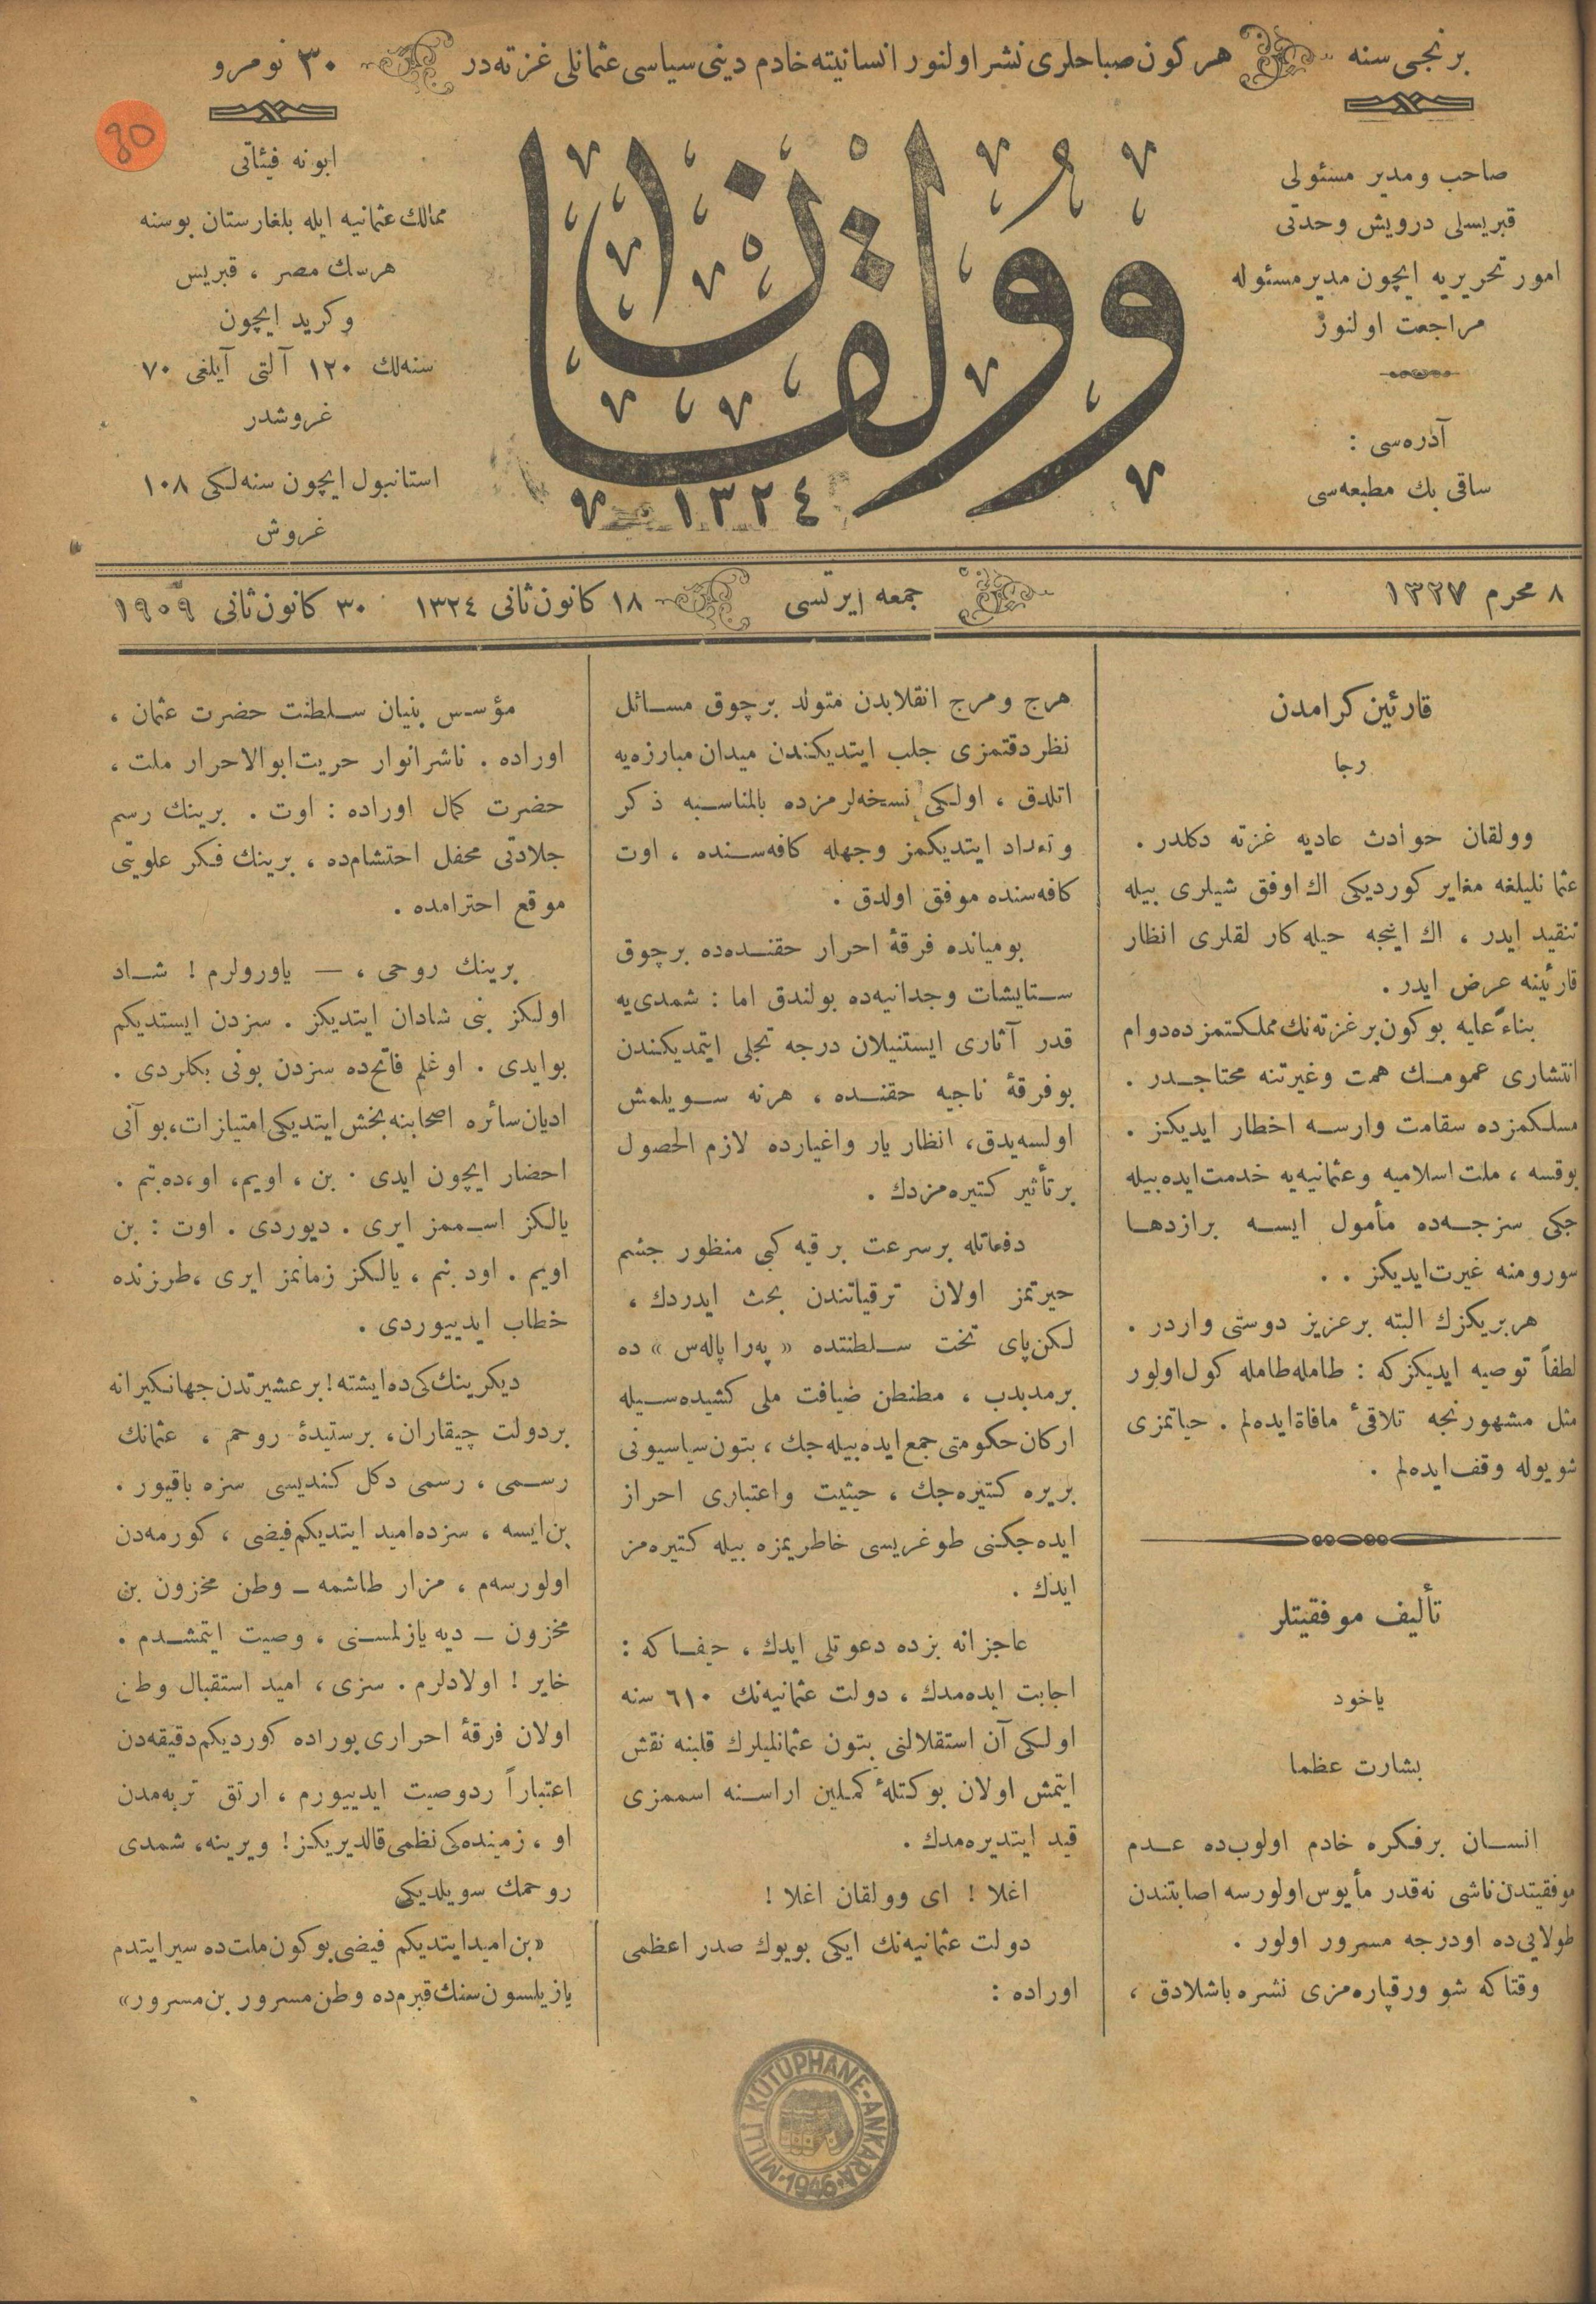 برنجی سنه
هر كون صباحلری نشر اولنور انسانیته خادم دینی سیاسی عثمانلی غزته‌در
٣٠ نومرو
صاحب و مدیر مسئولی
قبریسلی درویش وحدتی
امور تحریریه ایچون مدیر مسئوله
مراجعت اولنور
آدره‌سی :
ساقی بك مطبعه‌سی
وولقان
١٣٢٤
ابونه فیئاتی
ممالك عثمانیه ایله بلغارستان بوسنه
هرسك مصر ، قبریس
و كرید ایچون
سنه‌لك ١٢٠ آلتی آیلغی ٧٠
غروشدر
استانبول ایچون سنه‌لكی ١٠٨
غروش
80
٨ محرم ١٣٢٧
جمعه ایرتسی
١٨ كانون ثانی ١٣٢٤
٣٠ كانون ثانی ١٩٠٩
قارئین كرامدن
رجا
وولقان حوادث عادیه غزته دكلدر .
عثمانلیلغه مغایر كوردیكی اك اوفق شیلری بیله
تنقید ایدر ، اك اینجه حیله‌كار لقلری انظار
قارئینه عرض ایدر .
بناءً علیه بو كون بر غزته‌نك مملكتمزده دوام
انتشاری عمومك همت و غیرتنه محتاجدر .
مسلكمزده سقامت وارسه اخطار ایدیكز .
یوقسه ، ملت اسلامیه و عثمانیه‌یه خدمت ایده‌بیله
جكی سزجه‌ده مأمول ایسه برازدها
سورومنه غیرت ایدیكز . .
هر بریكزك البته بر عزیز دوستی واردر .
لطفاً توصیه ایدیكز كه : طامله طامله كول اولور
مثل مشهورنجه تلاقیٔ مافاة ایده‌لم . حیاتمزی
شو یوله وقف ایده‌لم .
تألیف موفقیتلر
یاخود
بشارت عظما
انسان بر فكره خادم اولوب‌ده عدم
موفقیتدن ناشی نه‌قدر مأیوس اولورسه اصابتندن
طولایی‌ده اودرجه مسرور اولور .
وقتاكه شو ورقپاره‌مزی نشره باشلادق ،
هرج و مرج انقلابدن متولد بر چوق مسائل
نظر دقتمزی جلب ایتدیكندن میدان مبارزه‌یه
اتلدق ، اولكی نسخه‌لرمزده بالمناسبه ذكر
و تعداد ایتدیكمز وجهله كافه‌سنده ، اوت
كافه‌سنده موفق اولدق .
بومیانده فرقهٔ احرار حقنده‌ده بر چوق
ستایشات وجدانیه‌ده بولندق اما : شمدی‌یه
قدر آثاری ایستنیلان درجه تجلی ایتمدیكندن
بو فرقهٔ ناجیه حقنده ، هرنه سویلمش
اولسه‌یدق، انظار یار و اغیارده لازم الحصول
بر تأثیر كتیره‌مزدك .
دفعاتله بر سرعت برقیه كبی منظور چشم
حیرتمز اولان ترقیاتندن بحث ایدردك ،
لكن پای تخت سلطنتده « په‌را پاله‌س » ده
برمدبدب ، مطنطن ضیافت ملی كشیده‌سیله
اركان حكومتی جمع ایده‌بیله‌جك ، بتون سیاسیونی
بریره كتیره‌جك ، حیثیت و اعتباری احراز
ایده‌جكنی طوغریسی خاطریمزه بیله كتیره‌مز
ایدك .
عاجزانه بزده دعوتلی ایدك ، حیفاكه :
اجابت ایده‌مدك ، دولت عثمانیه‌نك ٦١٠ سنه
اولكی آن استقلالنی بتون عثمانلیلرك قلبنه نقش
ایتمش اولان بو كتلهٔ كملین اراسنه اسممزی
قید ایتدیره‌مدك .
اغلا ! ای وولقان اغلا !
دولت عثمانیه‌نك ایكی بویوك صدر اعظمی
اوراده :
مؤسس بنیان سلطنت حضرت عثمان ،
اوراده . ناشر انوار حریت ابوالاحرار ملت ،
حضرت كمال اوراده : اوت . برینك رسم
جلادتی محفل احتشامده ، برینك فكر علویتی
موقع احترامده .
برینك روحی ، — یاورولرم ! شاد
اولیكز بنی شادان ایتدیكز . سزدن ایستدیكم
بو ایدی . اوغلم فاتح‌ده سزدن بونی بكلردی .
ادیان سائره اصحابنه بخش ایتدیكی امتیازات، بو آنی
احضار ایچون ایدی . بن ، اویم، او،ده‌بنم .
یالكز اسممز ایری . دیوردی . اوت : بن
اویم . اود بنم ، یالكز زمانمز ایری ، طرزنده
خطاب ایدییوردی .
دیكرینك‌كی ده ایشته ! بر عشیرتدن جهانكیرانه
بر دولت چیقاران، برستیدهٔ روحم ، عثمانك
رسمی ، رسمی دكل كندیسی سزه باقیور .
بن ایسه ، سزده امید ایتدیكم فیضی ، كورمه‌دن
اولورسه‌م ، مزار طاشمه ــ وطن مخزون بن
مخزون ــ دیه یازلمسنی ، وصیت ایتمشدم .
خایر ! اولادلرم . سزی ، امید استقبال وطن
اولان فرقهٔ احراری بوراده كوردیكم دقیقه‌دن
اعتباراً ردوصیت ایدییورم ، ارتق تربه‌مدن
او ، زمینده‌كی نظمی قالدیریكز ! و یرینه، شمدی
روحمك سویلدیكی
«بن امید ایتدیكم فیضی بوكون ملت‌ده سیر ایتدم
یازیلسون سنك قبرم‌ده وطن مسرور بن مسرور»
MİLLÎ KÜTÜPHANE-ANKARA
1946